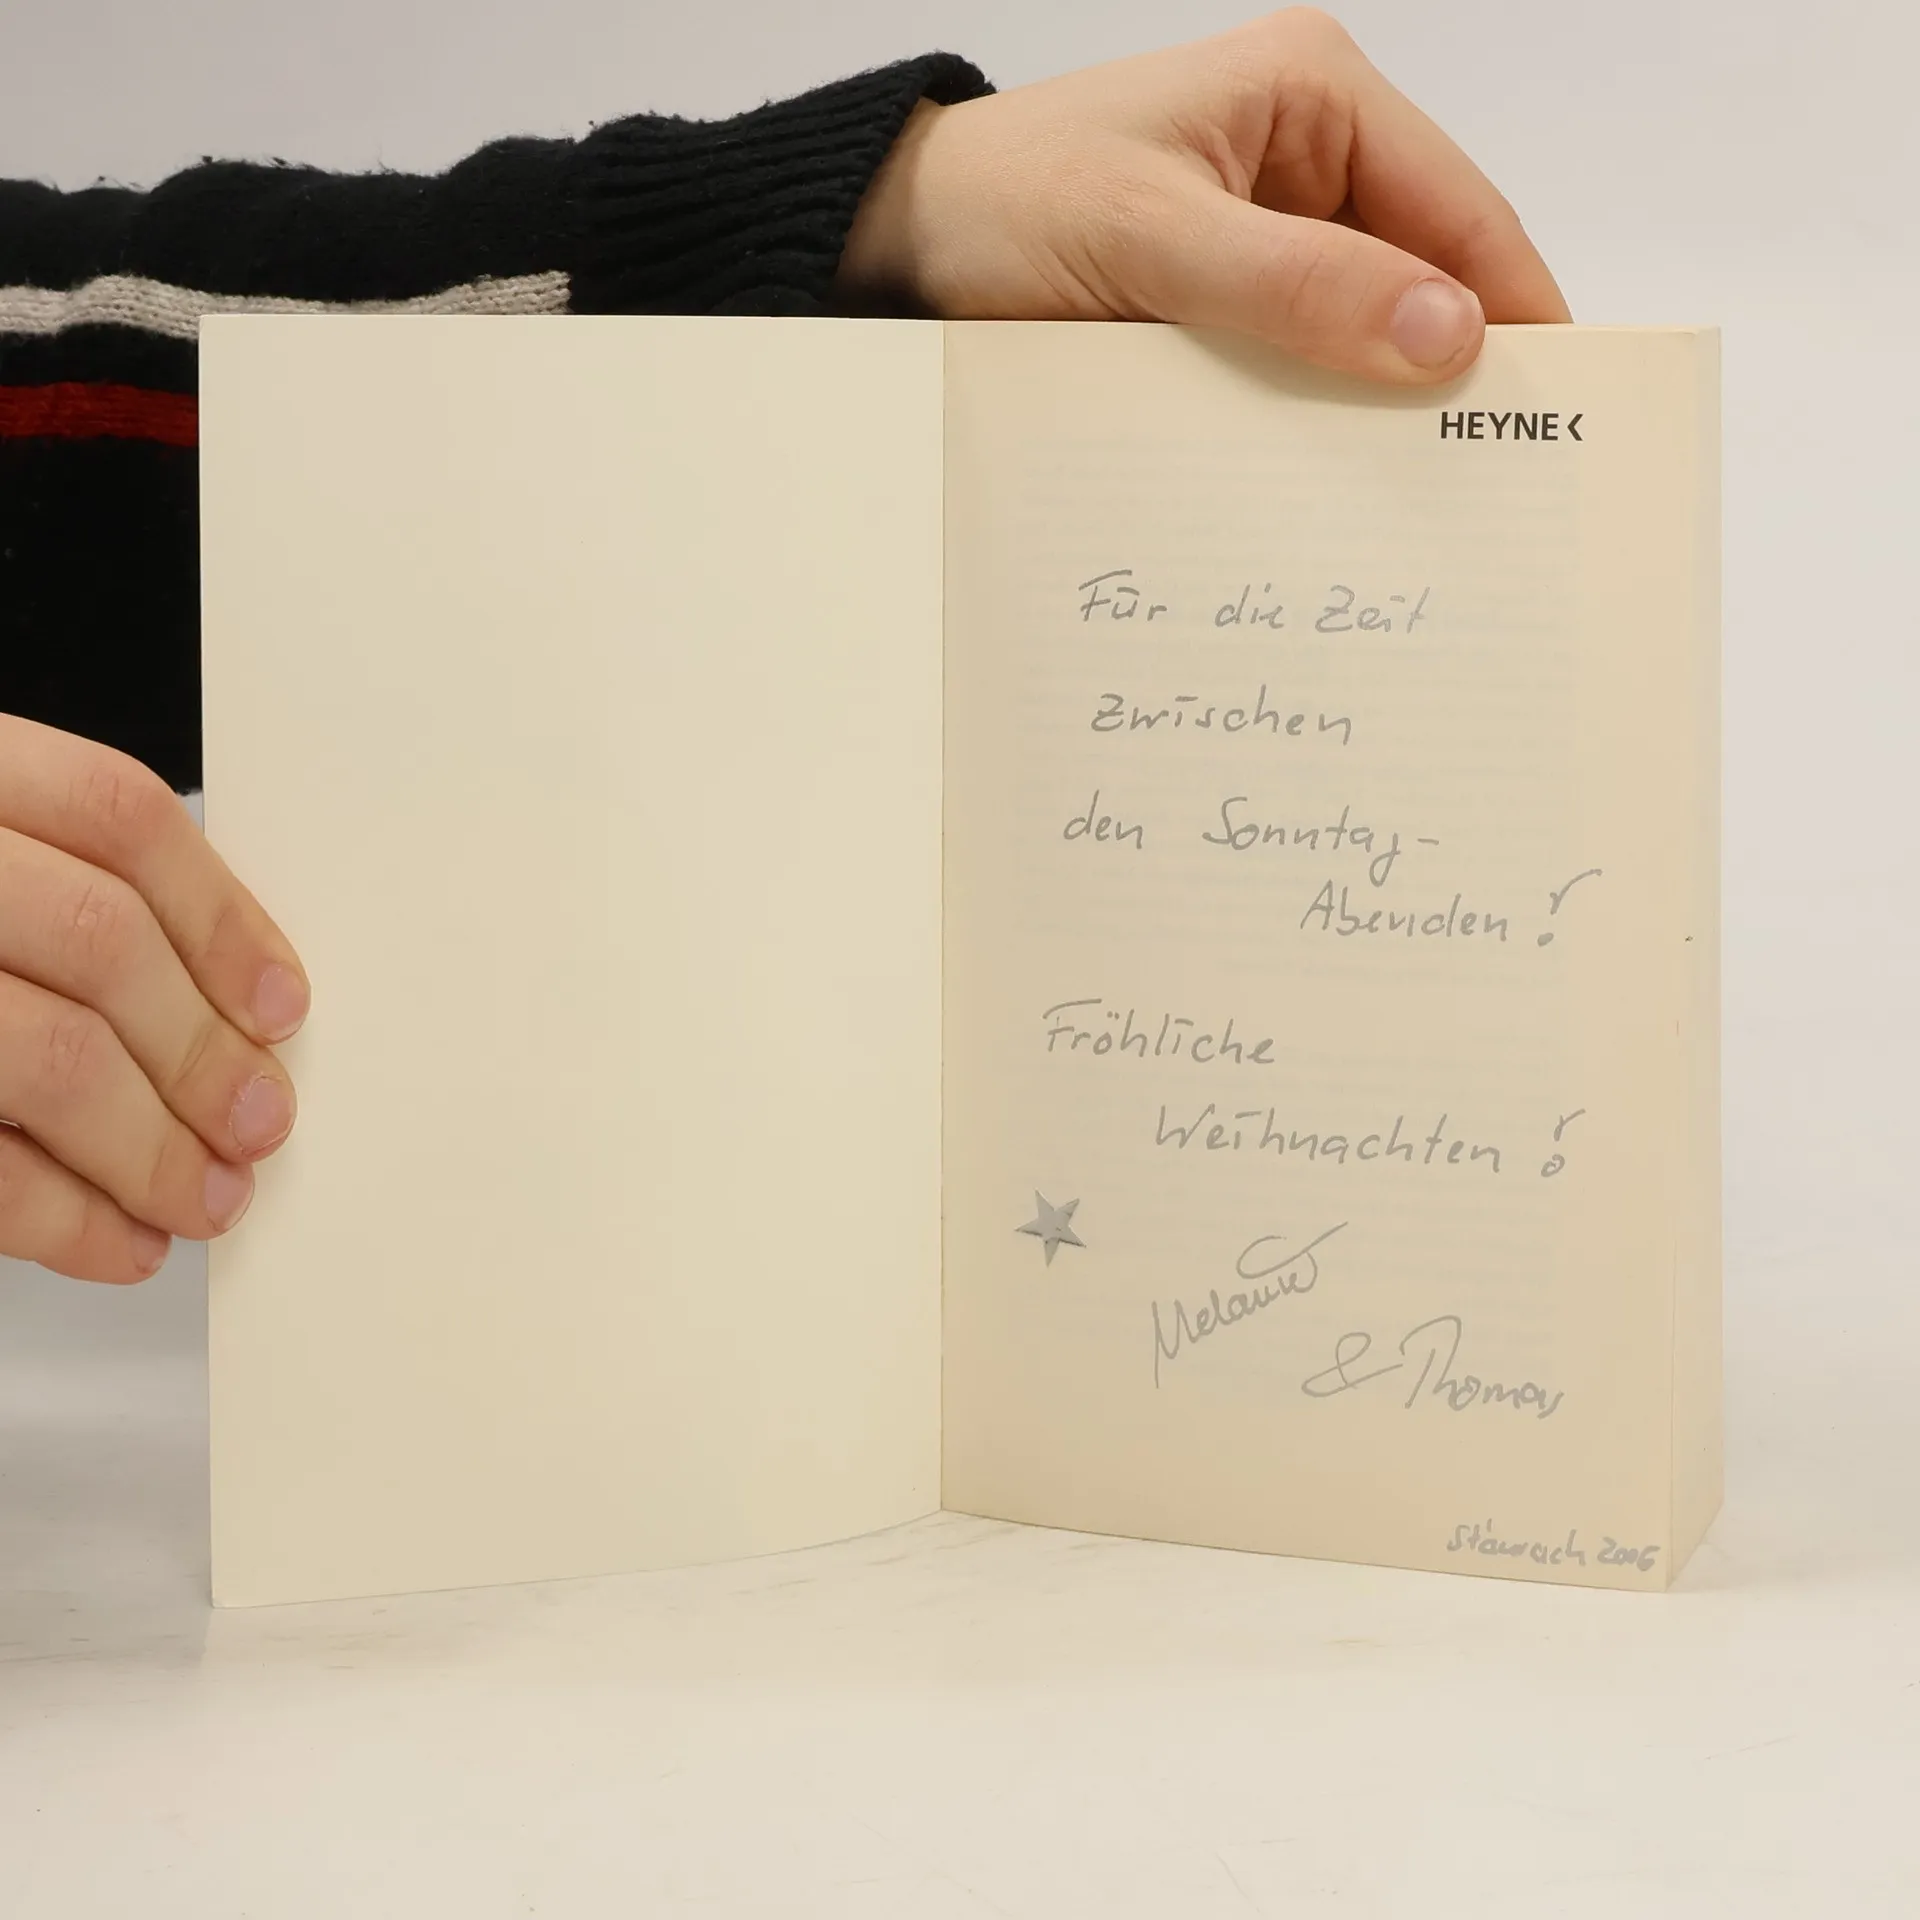 HEYNE <
Für die Zeit
zwischen
den Sonntag-
Abenden!
Fröhliche
Weihnachten!
Melanie
& Thomas
2006